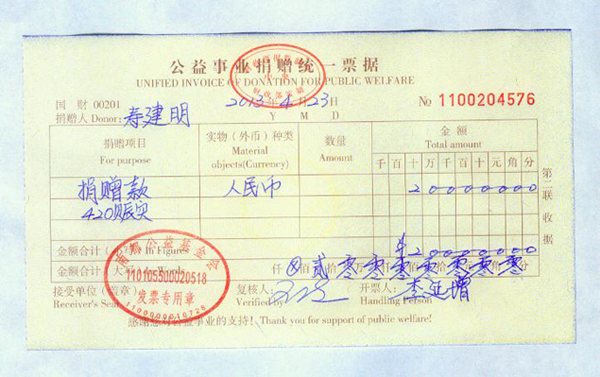 公益事业捐赠统一票据
UNIFIED INVOICE OF DONATION FOR PUBLIC WELFARE
国 财 00201 2013年4月23日 No 1100204576
捐赠人Donor: 寿建明 Y M D
捐赠项目 For purpose 实物(外币)种类 Material objects(Currency) 数量 Amount 金额 Total amount
千 百 十 万 千 百 十 元 角 分
捐赠款 人民币 2 0 0 0 0 0 0 0
420赈灾
金额合计(小写)In Figures ¥ 2 0 0 0 0 0 0 0
金额合计(大写) 仟 ⊗ 贰 零 零 零 零 零 零 零
接受单位(盖章) Receiver's Seal 复核人: Verified by 开票人: Handling Person 李延增
感谢您对公益事业的支持! Thank you for support of public welfare!
第二联收据
公益基金会
110105300020518
发票专用章